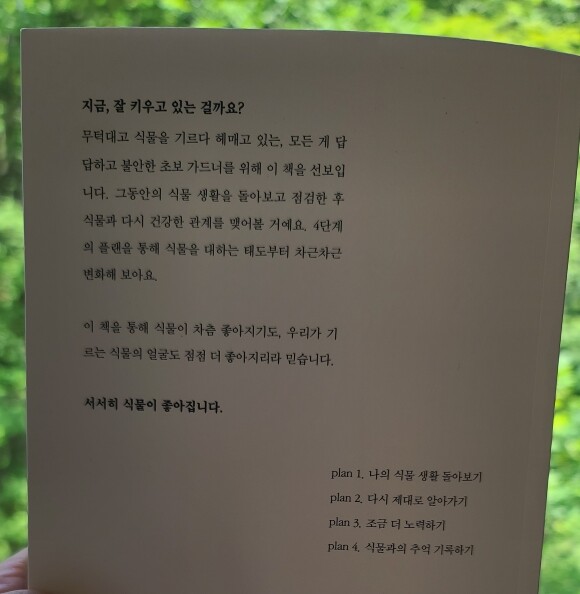 지금, 잘 키우고 있는 걸까요?
무턱대고 식물을 기르다 헤매고 있는, 모든 게 답
답하고 불안한 초보 가드너를 위해 이 책을 선보입
니다. 그동안의 식물 생활을 돌아보고 점검한 후
식물과 다시 건강한 관계를 맺어볼 거예요. 4단계
의 플랜을 통해 식물을 대하는 태도부터 차근차근
변화해 보아요.
이 책을 통해 식물이 차츰 좋아지기도, 우리가 기
르는 식물의 얼굴도 점점 더 좋아지리라 믿습니다.
서서히 식물이 좋아집니다.
plan 1. 나의 식물 생활 돌아보기
plan 2. 다시 제대로 알아가기
plan 3. 조금 더 노력하기
plan 4. 식물과의 추억 기록하기